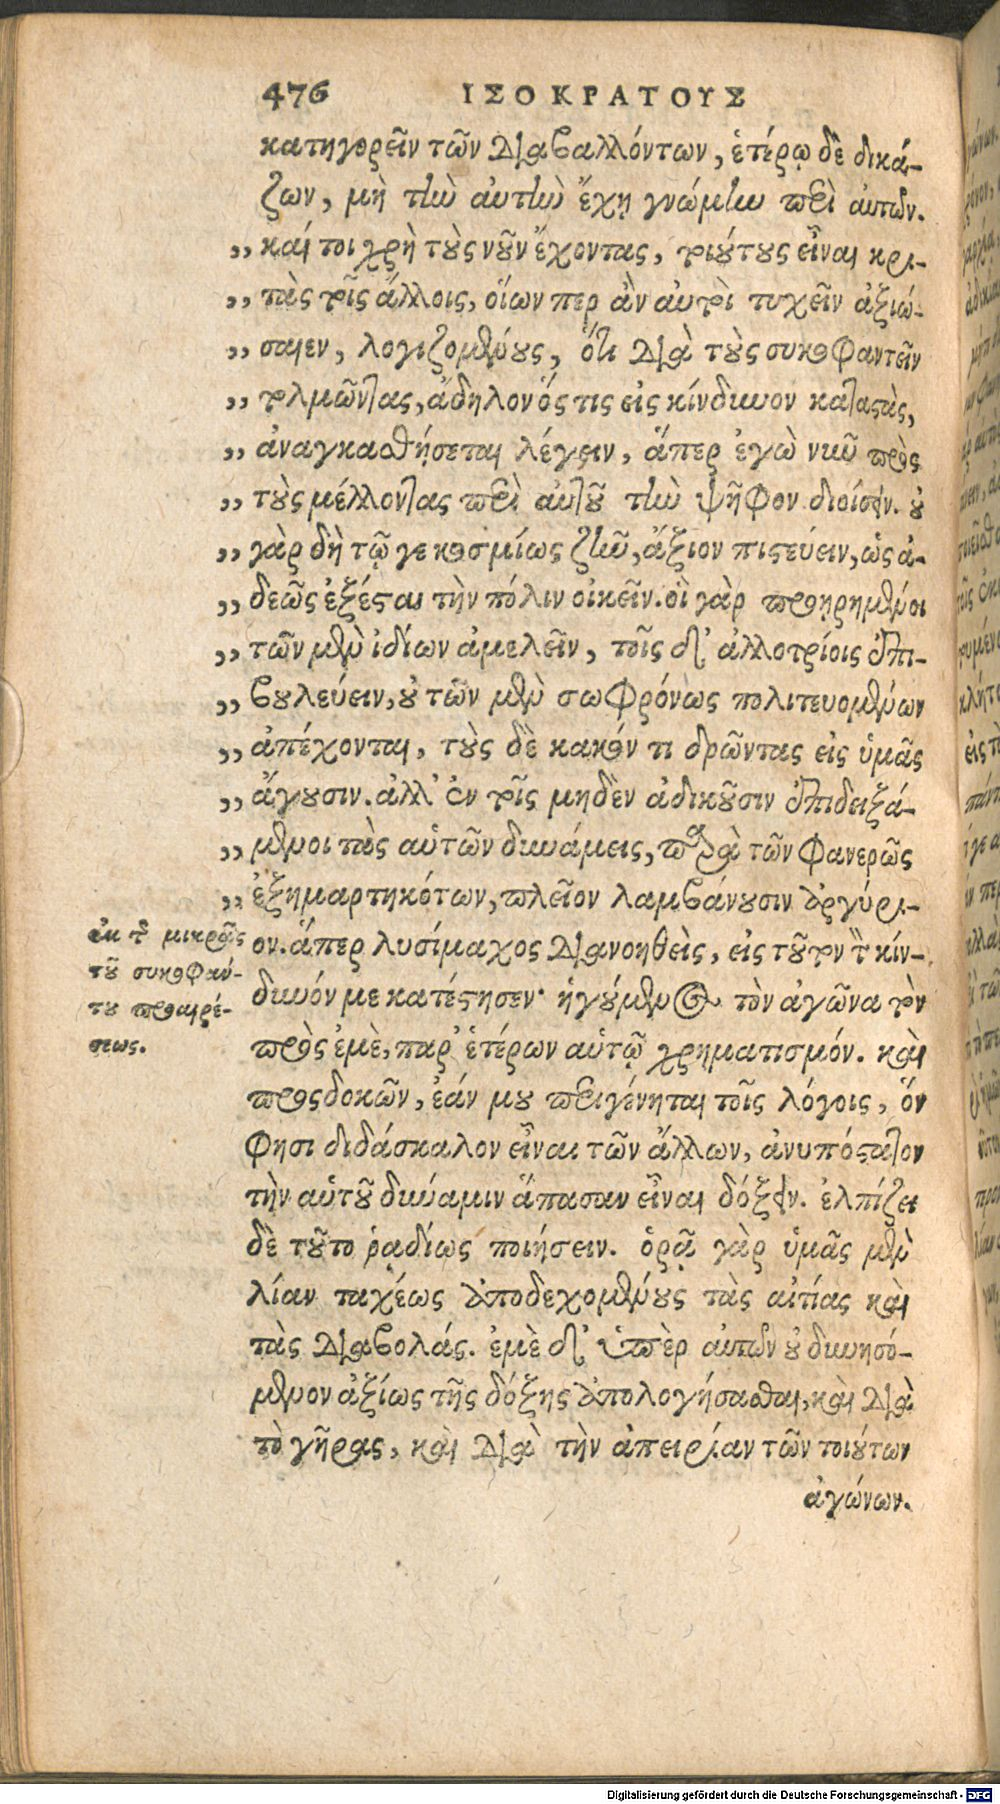 476 ΙΣΟΚΡΑΤΟΥΣ
κατηγορεῖν τῶν διαβαλλόντων, ἑτέρῳ δὲ δικά-
ζων, μὴ τὴν αὐτὴν ἔχῃ γνώμην περὶ αὐτῶν.
„ καί τοι χρὴ τοὺς νοῦν ἔχοντας, τοιούτους εἶναι κρι-
„ τὰς τοῖς ἄλλοις, οἵων περ ἂν αὐτοὶ τυχεῖν ἀξιώ-
„ σαιεν, λογιζομένους, ὅτι διὰ τοὺς συκοφαντεῖν
„ τολμῶντας, ἄδηλον ὅς τις εἰς κίνδυνον καταστὰς,
„ ἀναγκασθήσεται λέγειν, ἅπερ ἐγὼ νῦν πρὸς
„ τοὺς μέλλοντας περὶ αὐτοῦ τὴν ψῆφον διοίσειν. οὐ
„ γὰρ δὴ τῷ γε κοσμίως ζῆν, ἄξιον πιστεύειν, ὡς ἀ-
„ δεῶς ἐξέσται τὴν πόλιν οἰκεῖν. οἱ γὰρ προῃρημένοι
„ τῶν μὲν ἰδίων ἀμελεῖν, τοῖς δ' ἀλλοτρίοις ἐπι-
„ βουλεύειν, οὐ τῶν μὲν σωφρόνως πολιτευομένων
„ ἀπέχονται, τοὺς δὲ κακόν τι δρῶντας εἰς ὑμᾶς
„ ἄγουσιν. ἀλλ' ἐν τοῖς μηδὲν ἀδικοῦσιν ἐπιδειξά-
„ μενοι τὰς αὑτῶν δυνάμεις, παρὰ τῶν φανερῶς
„ ἐξημαρτηκότων, πλεῖον λαμβάνουσιν ἀργύρι-
ον. ἅπερ λυσίμαχος διανοηθεὶς, εἰς τοῦτον τὸν κίν-
δυνόν με κατέστησεν· ἡγούμενος τὸν ἀγῶνα τὸν
πρὸς ἐμὲ, παρ' ἑτέρων αὑτῷ χρηματισμόν. καὶ
προσδοκῶν, ἐάν μου περιγένηται τοῖς λόγοις, ὅν
φησι διδάσκαλον εἶναι τῶν ἄλλων, ἀνυπόστατον
τὴν αὑτοῦ δύναμιν ἅπασαν εἶναι δόξειν. ἐλπίζει
δὲ τοῦτο ῥᾳδίως ποιήσειν. ὁρᾷ γὰρ ὑμᾶς μὲν
λίαν ταχέως ἀποδεχομένους τὰς αἰτίας καὶ
τὰς διαβολάς. ἐμὲ δ' ὑπὲρ αὐτῶν οὐ δυνησό-
μενον ἀξίως τῆς δόξης ἀπολογήσασθαι, καὶ διὰ
τὸ γῆρας, καὶ διὰ τὴν ἀπειρίαν τῶν τοιούτων
ἀγώνων.
ἐκ τῆς μικρᾶς
τοῦ συκοφάν-
του προαιρέ-
σεως.
Digitalisierung gefördert durch die Deutsche Forschungsgemeinschaft - DFG